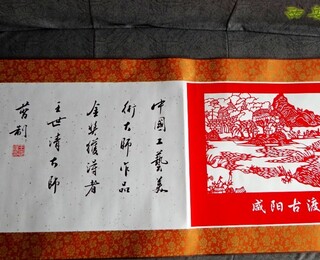 中國工藝美
術大師作品
金奖獲得者
王世清大师
剪刻
咸阳古渡